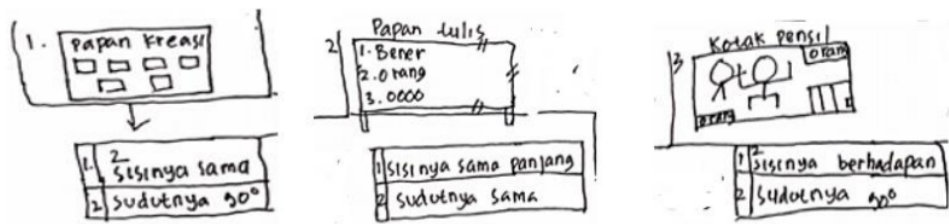 1.
Papan Kreasi
1. 2 sisinya sama
2 Sudutnya 90°
2
Papan tulis
1. Bener
2. Orang
3. 0000
1 sisinya sama panjang
2 sudutnya sama
3
Kotak pensil
orang
orang
1 2 sisinya berhadapan
2 Sudutnya 90°